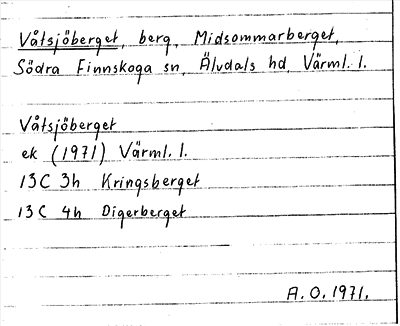 Våtsjöberget, berg, Midsommarberget,
Södra Finnskoga sn, Älvdals hd, Värml. l.
Våtsjöberget
ek (1971) Värml. l.
13C 3h Kringsberget
13C 4h Digerberget
A. O. 1971.